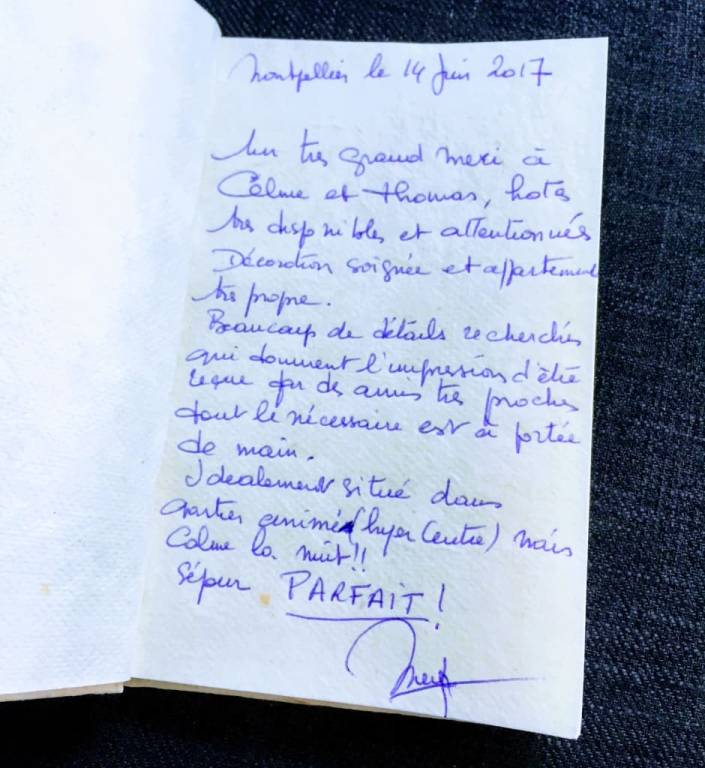 Montpellier le 14 Juin 2017
Un très grand merci à
Céline et Thomas, hotes
très disponibles et attentionnés
Décoration soignée et appartement
très propre.
Beaucoup de détails recherchés
qui donnent l'impression d'être
reçue par des amis très proches
tout le nécessaire est à portée
de main.
Idealement situé dans
quartier animé (hyper Centre) mais
Calme la nuit!!
Séjour PARFAIT!